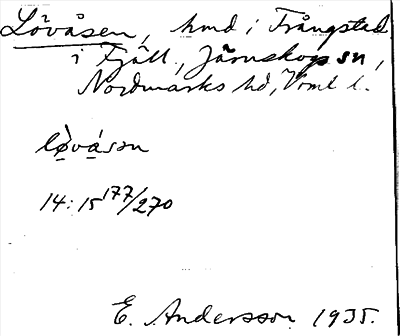 Lövåsen, hmd i Trångstad
i Fjäll, Järnskogs sn,
Nordmarks hd, Vrml l.
lø̀vá̱sən
14: 15 177/270
E. Andersson 1935.